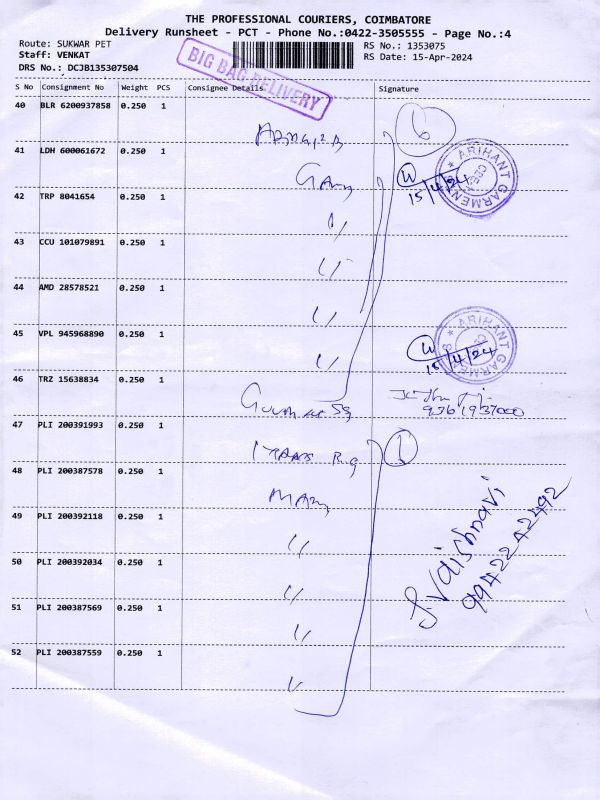 THE PROFESSIONAL COURIERS, COIMBATORE
Delivery Runsheet - PCT - Phone No.:0422-3505555 - Page No.:4
Route: SUKWAR PET
RS No.: 1353075
Staff: VENKAT
RS Date: 15-Apr-2024
DRS No.: DCJB135307504
BIG BAG DELIVERY
S No Consignment No Weight PCS Consignee Details Signature
40 BLR 6200937858 0.250 1
6
41 LDH 600061672 0.250 1
ARIHANT GARMENTS
15/4/24
42 TRP 8041654 0.250 1
43 CCU 101079891 0.250 1
44 AMD 28578521 0.250 1
45 VPL 945968890 0.250 1
ARIHANT GARMENTS
15/4/24
46 TRZ 15638834 0.250 1
47 PLI 200391993 0.250 1
48 PLI 200387578 0.250 1
49 PLI 200392118 0.250 1
50 PLI 200392034 0.250 1
S. Vaishnavi
9942242492
51 PLI 200387569 0.250 1
52 PLI 200387559 0.250 1